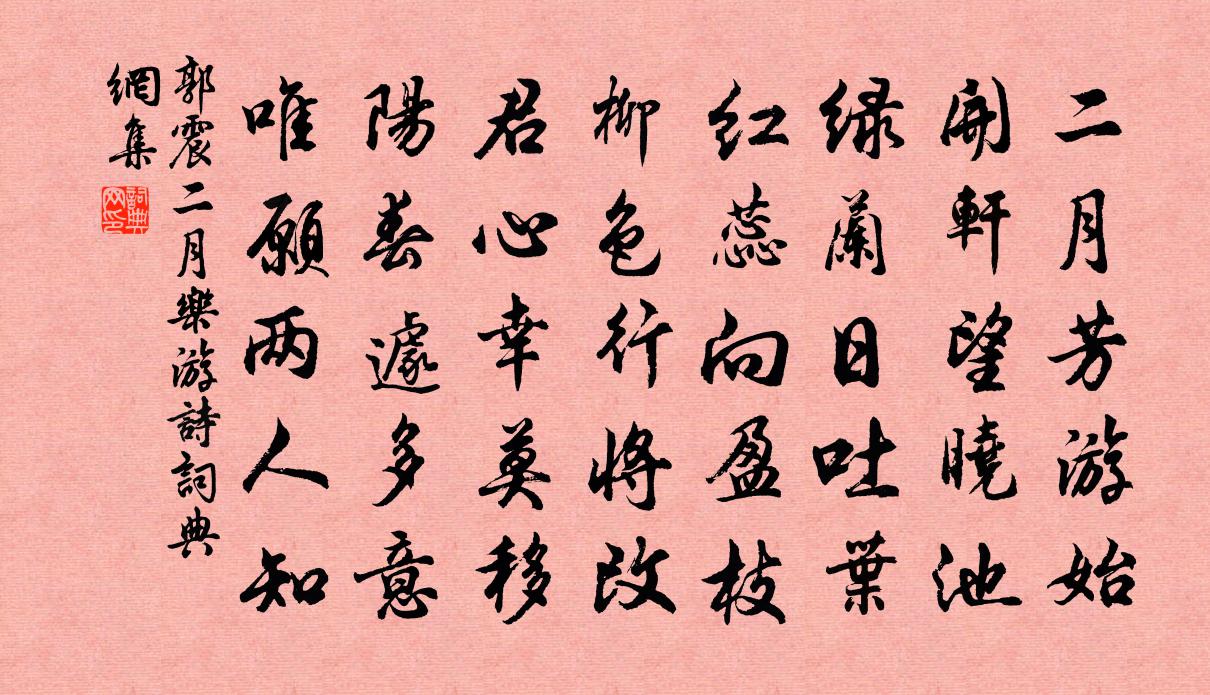 二月芳游始
開軒望曉池
緑蘭日吐葉
红蕊向盈枝
柳色行将改
君心幸莫移
陽春遽多意
唯願两人知
郭震二月樂游詩詞典
網集
詞典
网印